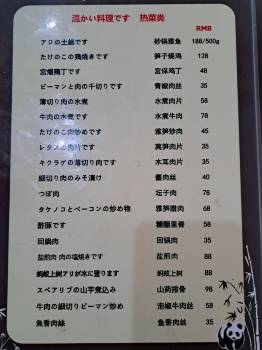 温かい料理です 热菜类
RMB
アジの土鍋です 砂锅雅鱼 188/500g
たけのこの鶏焼きです 笋子烧鸡 128
宮爆鶏丁です 宫保鸡丁 48
ピーマンと肉の千切りです 青椒肉丝 35
薄切り肉の水煮 水煮肉片 58
牛肉の水煮です 水煮牛肉 78
たけのこ肉炒めです 雅笋炒肉 45
レタスの肉片です 莴笋肉片 35
キクラゲの薄切り肉です 木耳肉片 35
細切り肉のみそ漬け 酱肉丝 40
つぼ肉 坛子肉 78
タケノコとベーコンの炒め物 雅笋腊肉 68
酢豚です 糖醋里脊 58
回鍋肉 回锅肉 35
盐煎肉 肉の塩焼きです 盐煎肉 88
蚂蚁上樹アリが木に登ります 蚂蚁上树 88
スペアリブの山芋煮込み 山药排骨 98
牛肉の細切りピーマン炒め 泡椒牛肉丝 58
魚香肉絲 鱼香肉丝 35